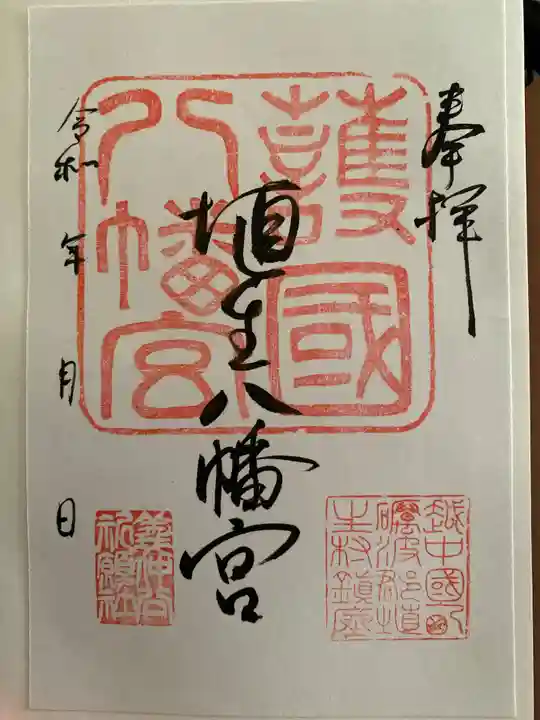 奉拝
護國
八幡宮
埴生八幡宮
令和 年 月 日
越中國
礪波郡埴
生村鎮座
義仲公
祈願社